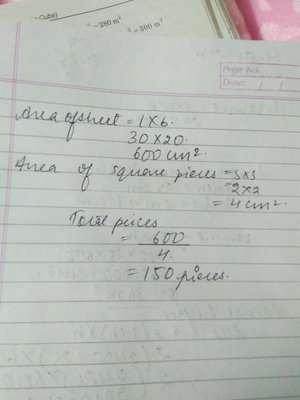 Cube)
= 280 m²
= 300 m²
Page No.
Date: / /
Area of sheet = l X b.
30 X 20.
600 cm².
Area of square pieces = s x s
2 x 2
= 4 cm².
Total peices
= 600
4
= 150 pieces.